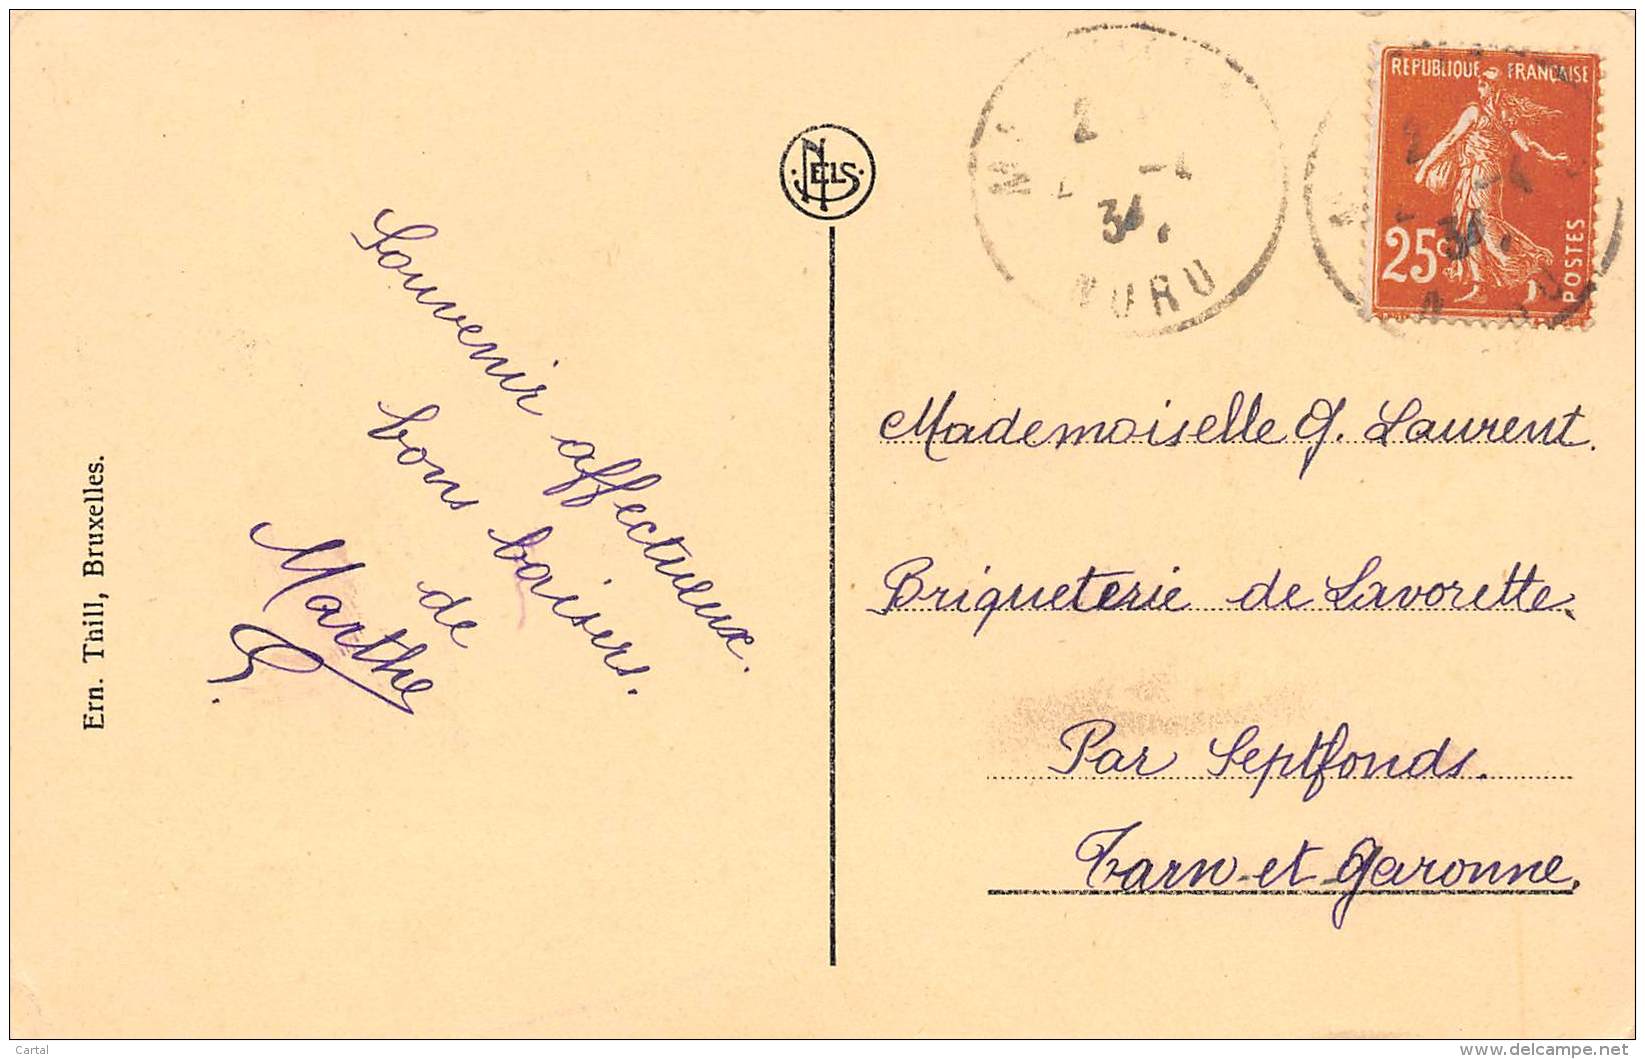 Ern. Thill, Bruxelles.
Souvenir affectueux.
bons baisers.
de
Marthe
NELS
2
-4
34
REPUBLIQUE FRANÇAISE
25c
POSTES
Mademoiselle G. Laurent.
Briqueterie de Lavorette.
Par Septfonds.
Tarn-et-Garonne.
Cartal
www.delcampe.net